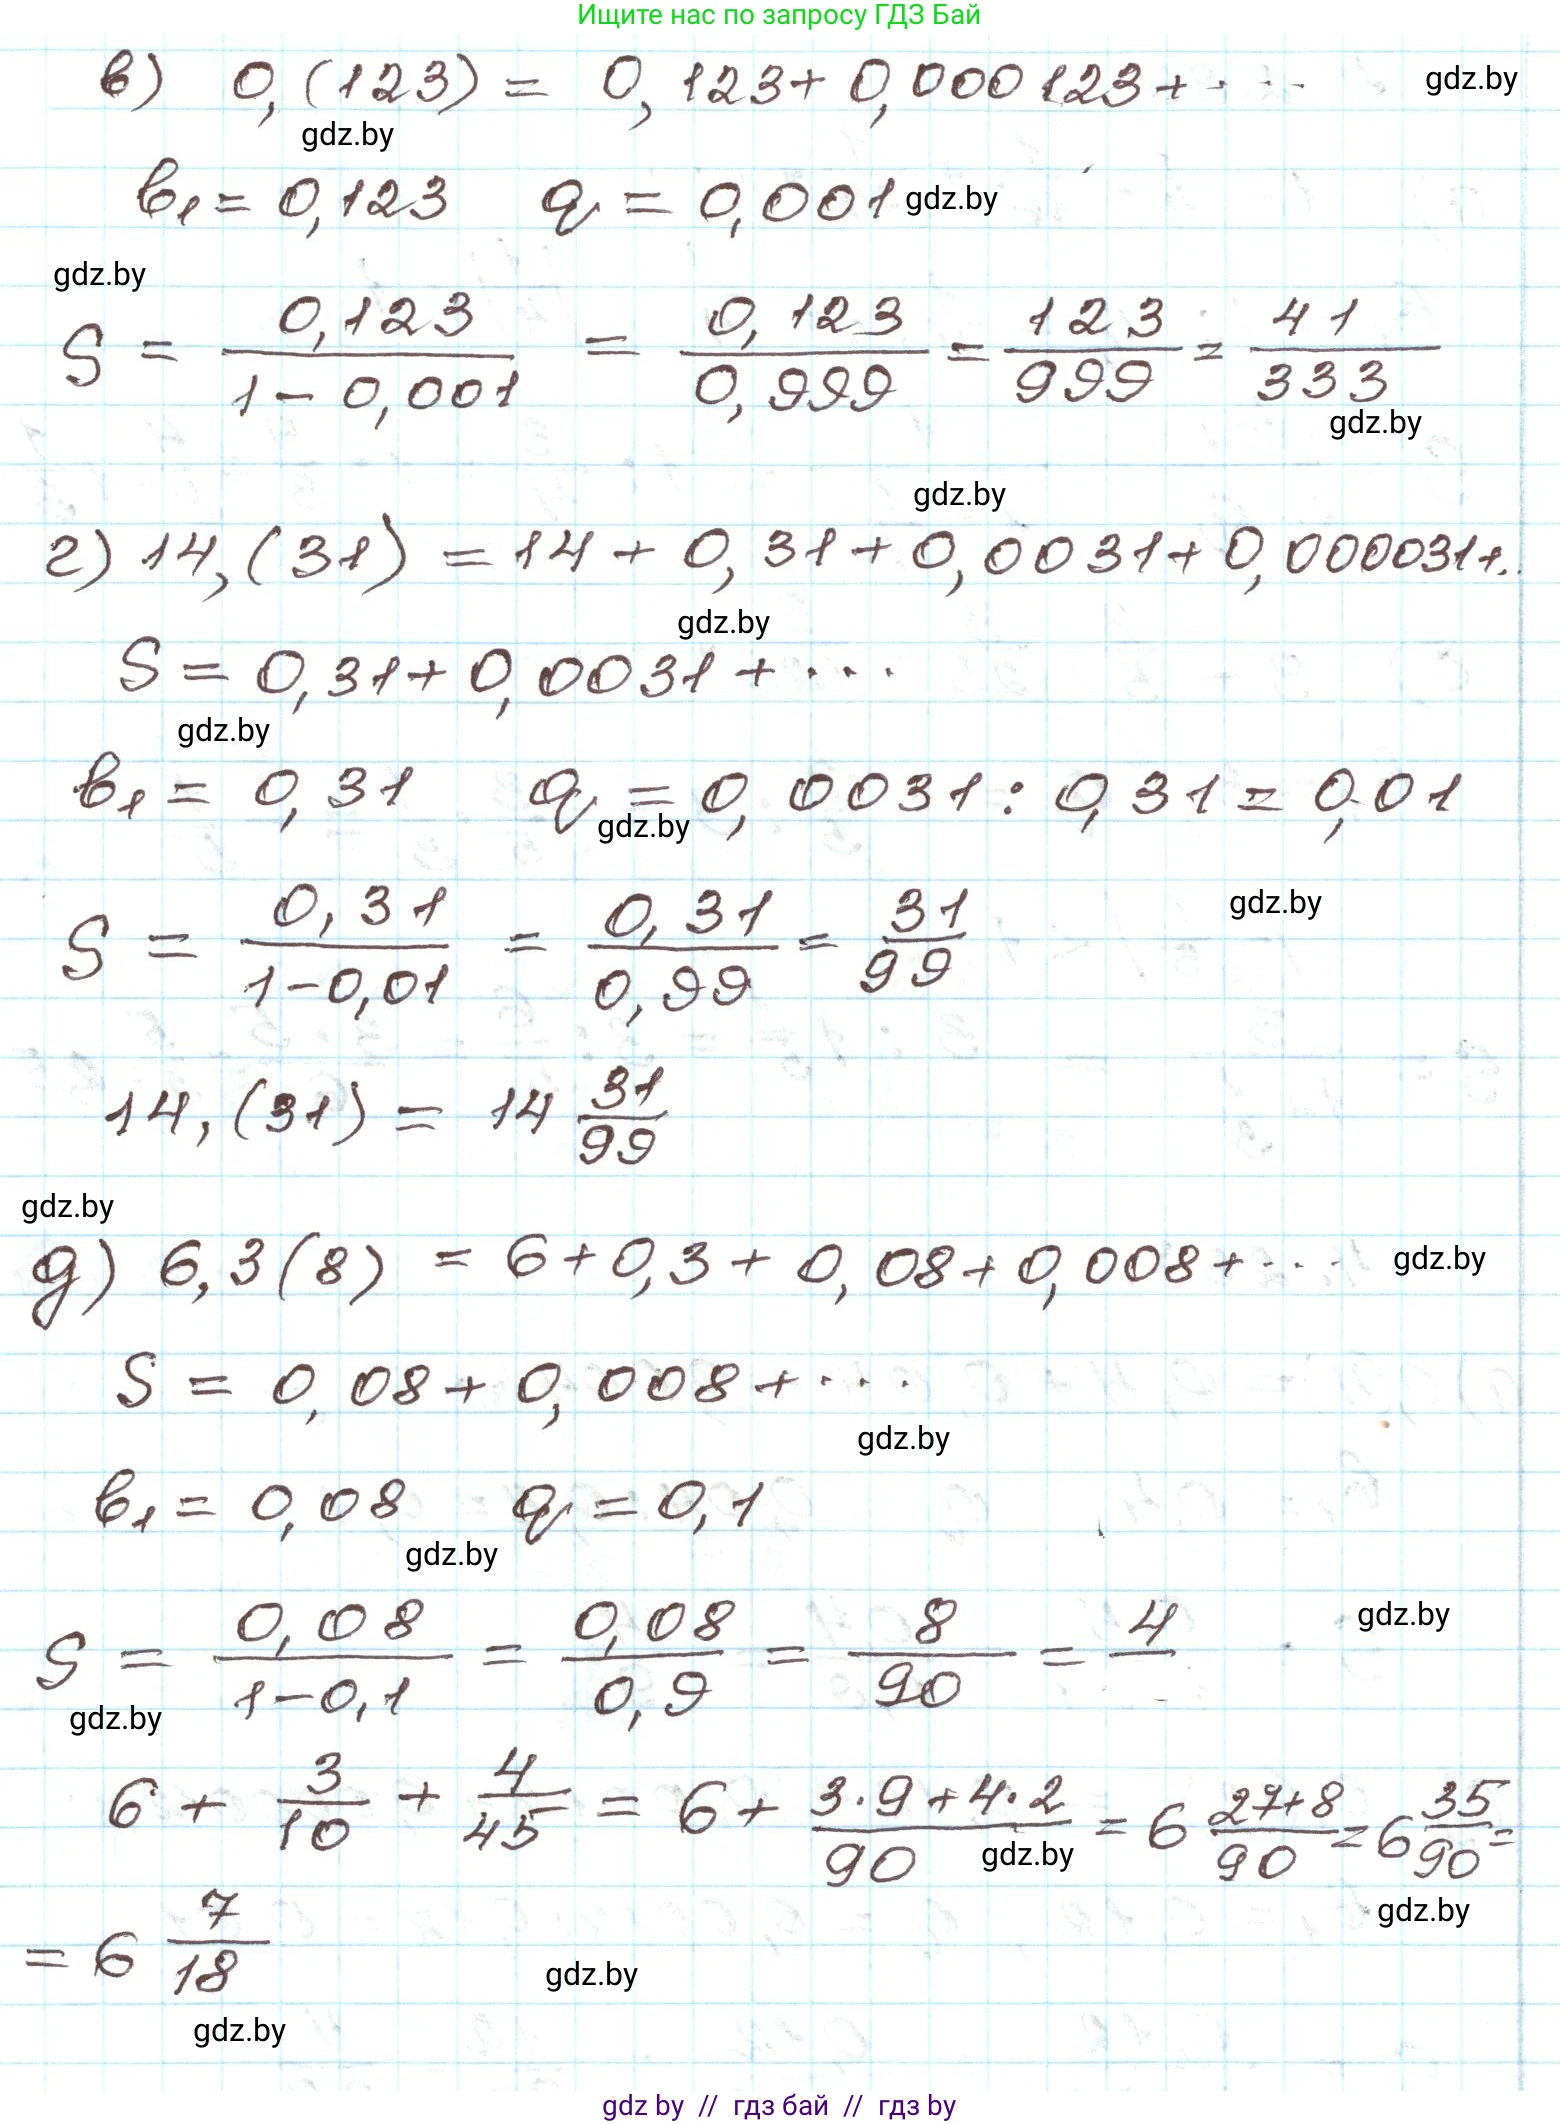 Ищите нас по запросу ГДЗ Бай
в) 0,(123) = 0,123 + 0,000123 + ... gdz.by
gdz.by
b₁ = 0,123 q = 0,001 gdz.by
gdz.by
S = 0,123/(1 − 0,001) = 0,123/0,999 = 123/999 = 41/333
gdz.by
gdz.by
г) 14,(31) = 14 + 0,31 + 0,0031 + 0,000031 + ..
gdz.by
S = 0,31 + 0,0031 + ...
gdz.by
b₁ = 0,31 q = 0,0031 : 0,31 = 0,01
gdz.by
S = 0,31/(1 − 0,01) = 0,31/0,99 = 31/99 gdz.by
14,(31) = 14 31/99
gdz.by
д) 6,3(8) = 6 + 0,3 + 0,08 + 0,008 + ... gdz.by
S = 0,08 + 0,008 + ...
gdz.by
b₁ = 0,08 q = 0,1
gdz.by
S = 0,08/(1 − 0,1) = 0,08/0,9 = 8/90 = 4/ gdz.by
gdz.by
6 + 3/10 + 4/45 = 6 + (3·9 + 4·2)/90 = 6 (27+8)/90 = 6 35/90 =
gdz.by
gdz.by
= 6 7/18
gdz.by
gdz.by
gdz by // гдз бай // гдз by